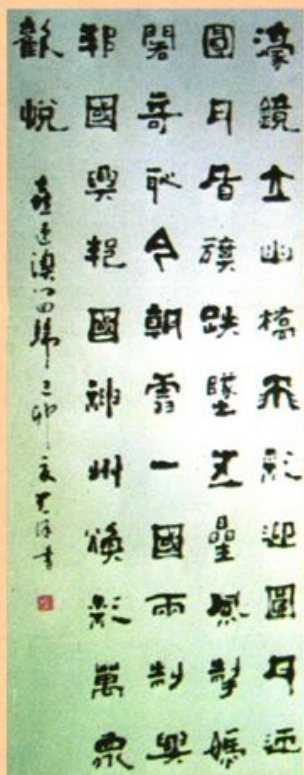 濠鏡立山橋飛彩迎圓月迎
圓月盾旗跌墜五星風掣媽
閣奇恥今朝雪一國兩制興
邦國興邦國神州煥彩萬眾
歡悅 喜迎澳門回歸 己卯 書